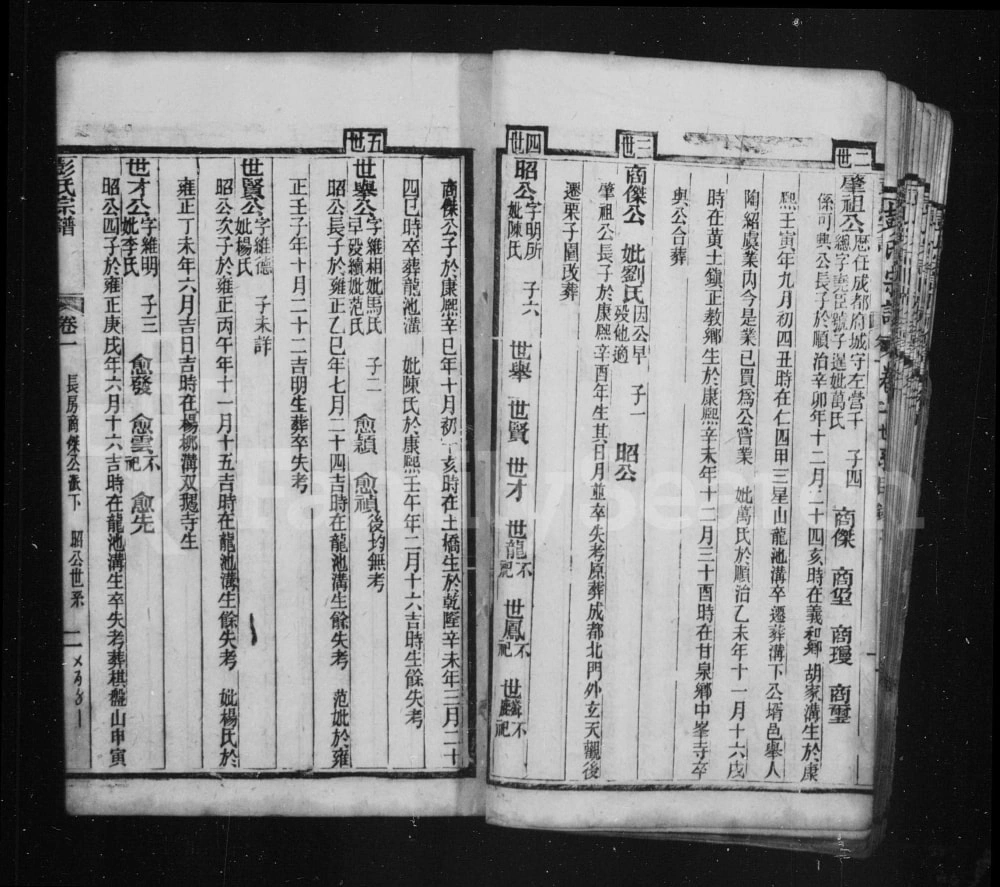 二世
肇祖公 歷任成都府城守左營千總字堯臣號子暹妣萬氏 子四 商傑 商垩 商璦 商璽
係可興公長子於順治辛卯年十二月二十四亥時在義和鄉胡家溝生於康
熙壬寅年九月初四丑時在仁四甲三星山龍池溝卒遷葬溝下公壻邑舉人
陶紹虞業內今是業已買爲公嘗業 妣萬氏於順治乙未年十一月十六戌
時在黃土鎮正教鄉生於康熙辛未年十二月三十酉時在甘泉鄉中峯寺卒
與公合葬
三世
商傑公 妣劉氏因公早歿他適 子一 昭公
肇祖公長子於康熙辛酉年生其日月並卒失考原葬成都北門外玄天觀後
遷栗子園改葬
四世
昭公 字明所妣陳氏 子六 世舉 世賢 世才 世龍不祀 世鳳不祀 世麟不祀
商傑公子於康熙辛巳年十月初十亥時在土橋生於乾隆辛未年三月二十
四巳時卒葬龍池溝 妣陳氏於康熙壬午年二月十六吉時生餘失考
五世
世舉公 字維相妣馬氏早歿續妣范氏 子二 愈穎 愈禎後均無考
昭公長子於雍正乙巳年七月二十四吉時在龍池溝生餘失考 范妣於雍
正壬子年十月二十二吉明生葬卒失考
世賢公 字維德妣楊氏 子未詳
昭公次子於雍正丙午年十一月十五吉時在龍池溝生餘失考 妣楊氏於
雍正丁未年六月吉日吉時在楊柳溝双䳽寺生
世才公 字維明妣李氏 子三 愈發 愈雲不祀 愈先
昭公四子於雍正庚戌年六月十六吉時在龍池溝生卒失考葬棋盤山申寅
彭氏宗譜 卷一 長房商傑公派下 昭公世系 二
FamilySearch